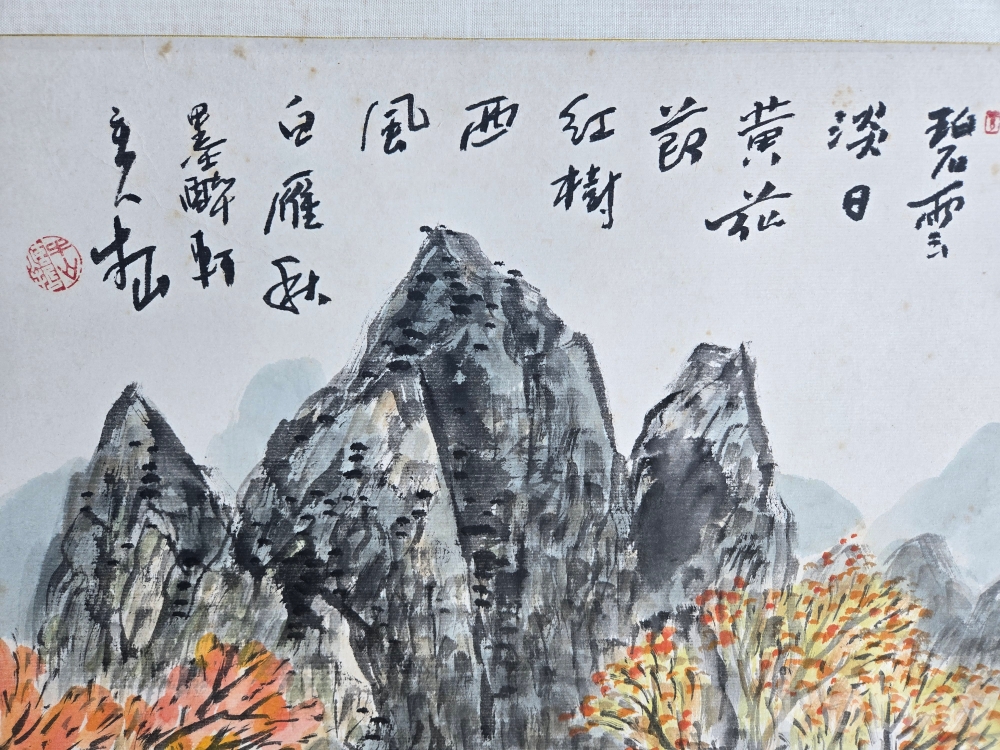 碧雲
淡日
黄花
節
紅樹
西
風
白雁秋
墨醉軒
主人